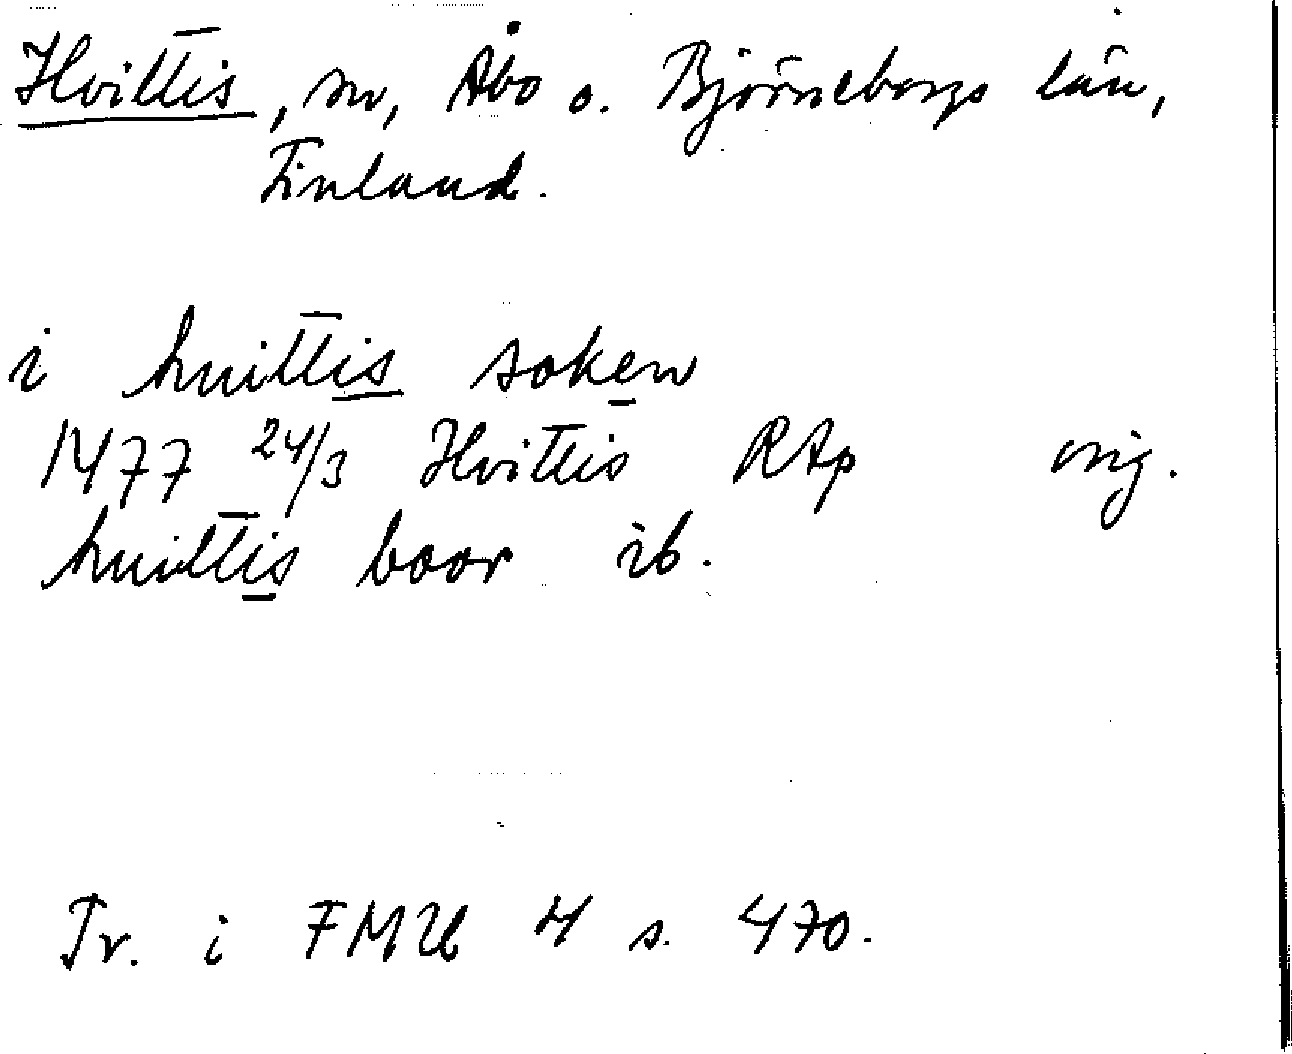 Hvittis, sn, Åbo o. Björneborgs län,
Finland.
i huittis soken
1477 24/3 Hvittis RAp orig.
huittis boor ib.
Tr. i FMU 4 s. 470.